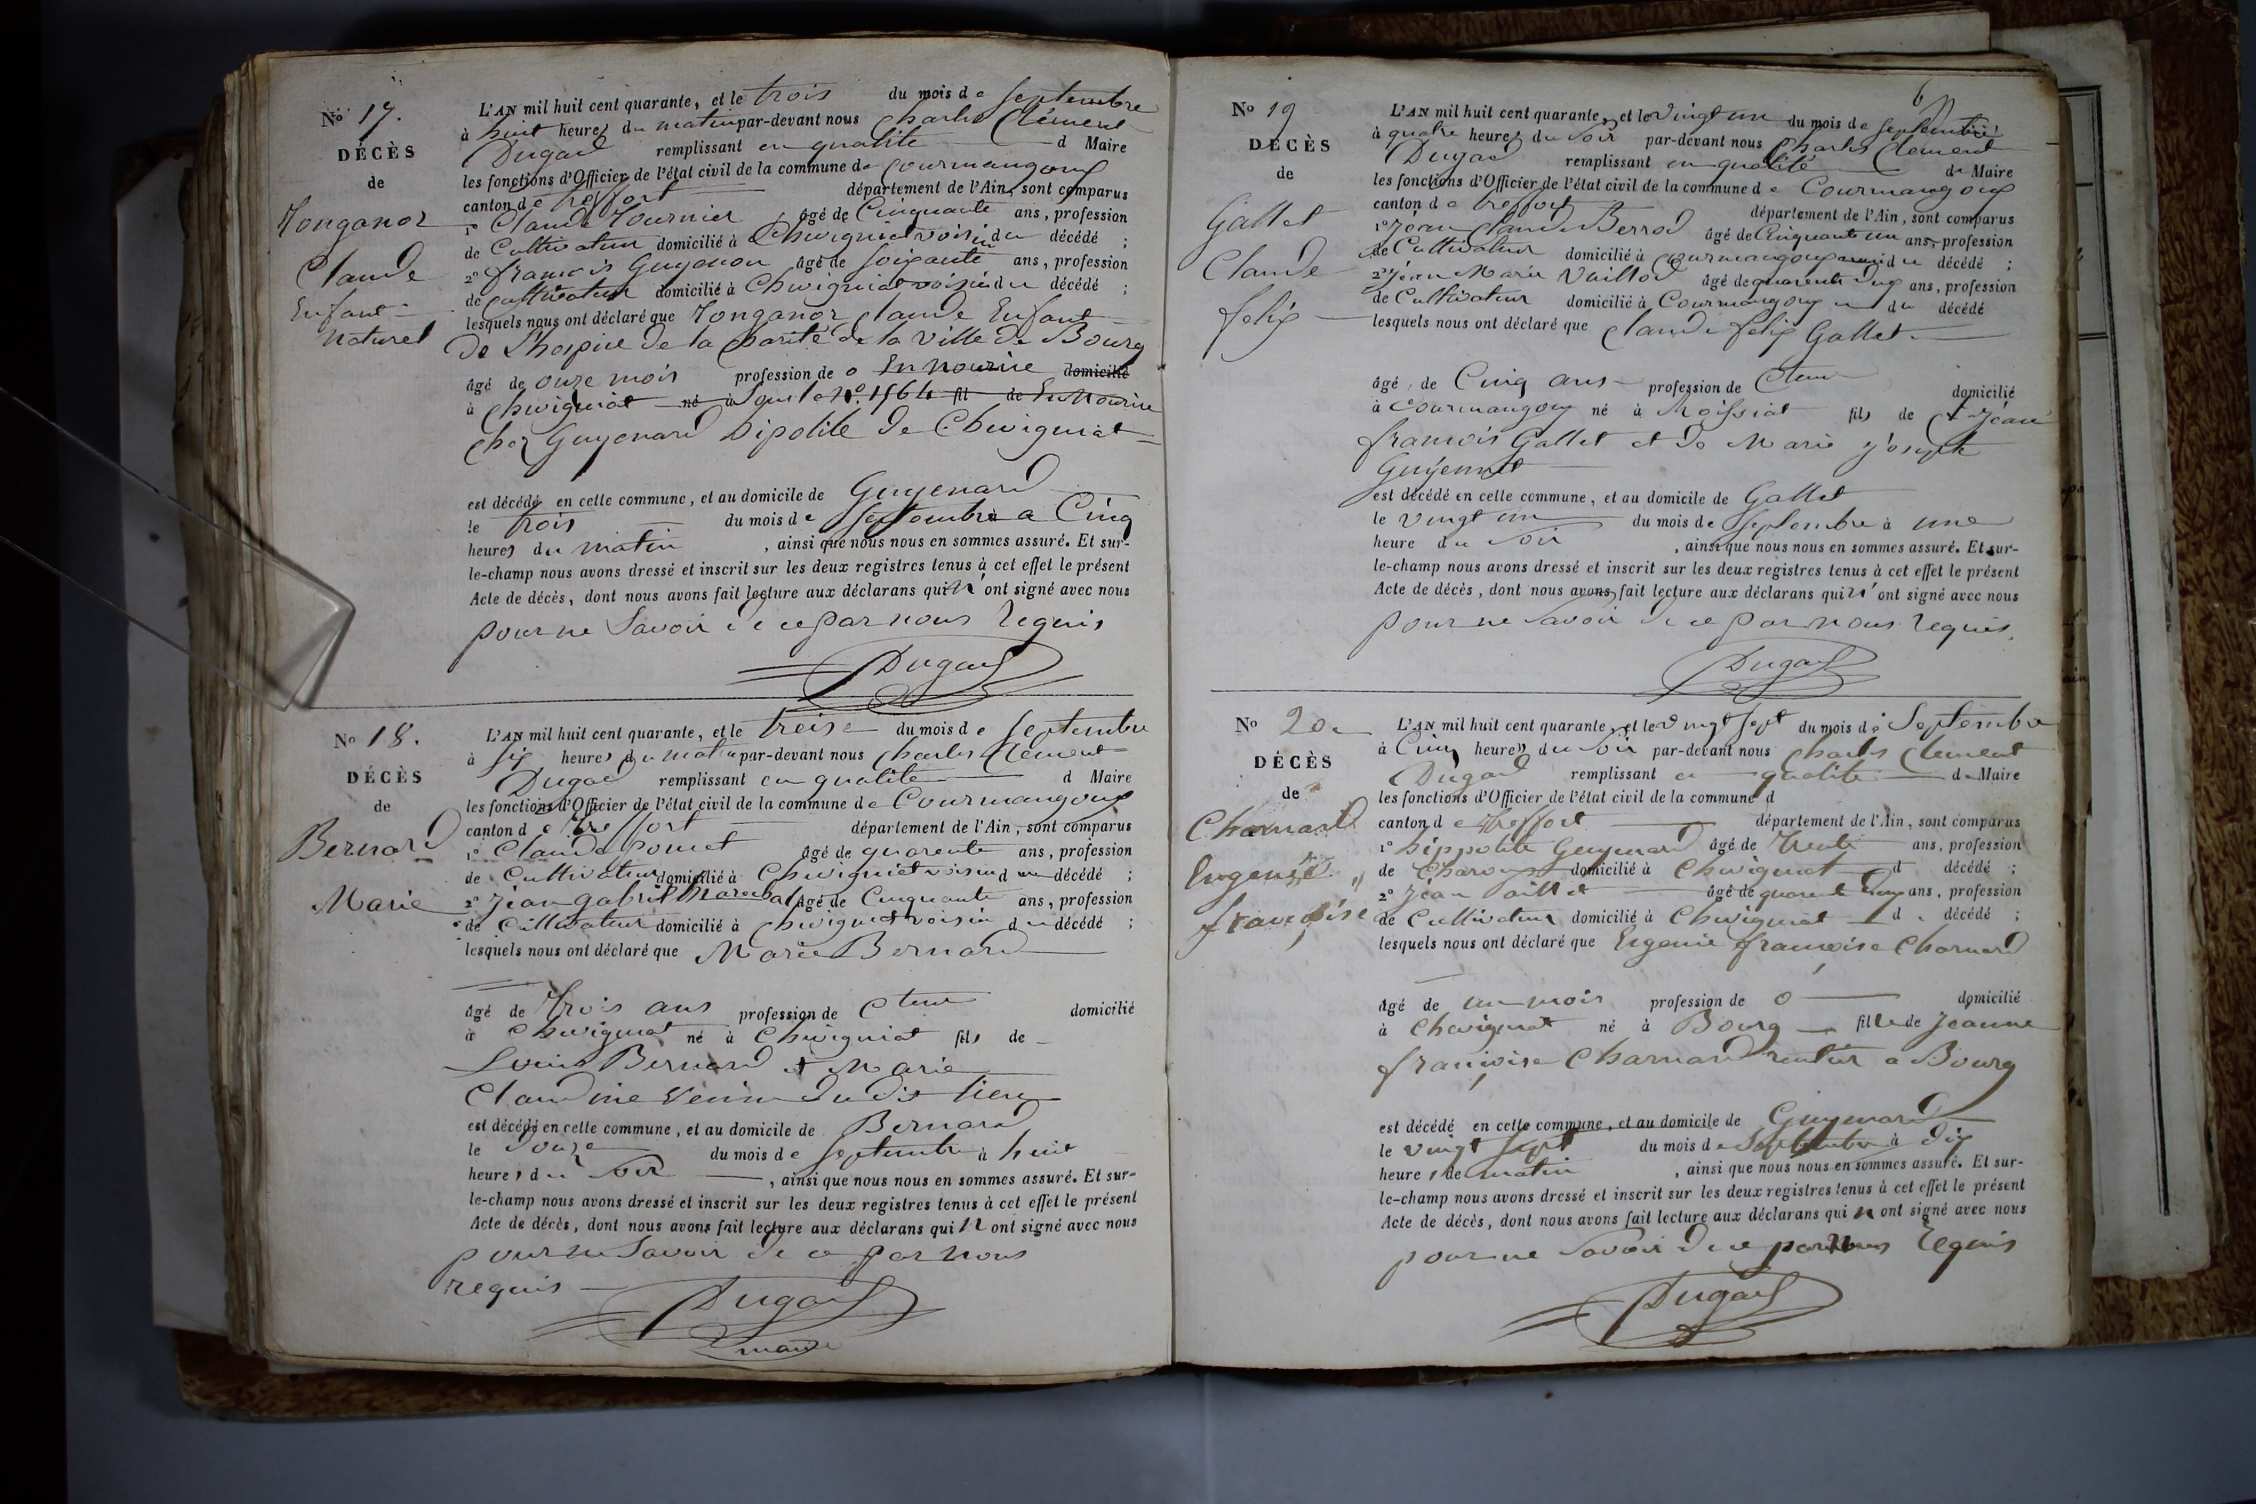 No 17.
DÉCÈS
de
Tonganoz
Claude
Enfant
naturel
L'AN mil huit cent quarante, et le trois du mois de septembre
à huit heures du matin par-devant nous Charles Clément
Dugad remplissant en qualité d Maire
les fonctions d'Officier de l'état civil de la commune de Courmangoux
canton de treffort département de l'Ain, sont comparus
1° Claude Tournier, âgé de Cinquante ans, profession
de Cultivateur domicilié à Chevignat voisin du décédé ;
2° françois Guyenon âgé de soixante ans, profession
de cultivateur domicilié à Chevigniat voisin du décédé ;
lesquels nous ont déclaré que Tonganoz claude Enfant
De L'hospice de la charité de la ville de Bourg
âgé de onze mois profession de o En nourice domicilié
à Chevigniat né à sous le No. 1564 fil de En Nourice
chez Guyenard hipolite de Chevigniat
est décédé en celle commune, et au domicile de Guyenard
le trois du mois de septembre a Cinq
heures du matin, ainsi que nous nous en sommes assuré. Et sur-
le-champ nous avons dressé et inscrit sur les deux registres tenus à cet effet le présent
Acte de décès, dont nous avons fait lecture aux déclarans qui n'ont signé avec nous
pour ne savoir de ce par nous requis
Dugad
No 18.
DÉCÈS
de
Bernard
Marie
L'AN mil huit cent quarante, et le treise du mois de septembre
à six heures du matin par-devant nous Charles Clément
Dugad remplissant en qualité d Maire
les fonctions d'Officier de l'état civil de la commune de Courmangoux
canton de treffort département de l'Ain, sont comparus
1° Claude Pomet âgé de quarente ans, profession
de Cultivateur domicilié à Chevigniat voisin d décédé ;
2° Jean gabriel Marechal âgé de Cinquante ans, profession
de Cultivateur domicilié à Chevigniat voisin du décédé ;
lesquels nous ont déclaré que Marie Bernard
âgé de trois ans profession de domicilié
à Chevigniat né à Chevigniat fils de
Louis Bernard et Marie
Claudine du dit lieu
est décédé en celle commune, et au domicile de Bernard
le douze du mois de septembre à huit
heures du soir, ainsi que nous nous en sommes assuré. Et sur-
le-champ nous avons dressé et inscrit sur les deux registres tenus à cet effet le présent
Acte de décès, dont nous avons fait lecture aux déclarans qui n ont signé avec nous
pour ne savoir de ce par nous
requis
Dugad
maire
No 19
DÉCÈS
de
Gallet
Claude
felix
L'AN mil huit cent quarante, et le vingt un du mois de septembre
à quatre heures du soir par-devant nous Charles Clement
Dugad remplissant en qualité de Maire
les fonctions d'Officier de l'état civil de la commune de Courmangoux
canton de treffort département de l'Ain, sont comparus
1° Jean Claude Berrod âgé de Cinquante un ans, profession
de Cultivateur domicilié à Courmangoux du décédé ;
2° Jean Marie Vuillod âgé de quarente dux ans, profession
de Cultivateur domicilié à Courmangoux du décédé
lesquels nous ont déclaré que Claude felix Gallet
âgé de Cinq ans profession de domicilié
à Courmangoux né à Moissiat fils de Jean
francois Gallet et de Marie josephte
Guyennet
est décédé en celle commune, et au domicile de Gallet
le vingt un du mois de septembre à une
heure du soir, ainsi que nous nous en sommes assuré. Et sur-
le-champ nous avons dressé et inscrit sur les deux registres tenus à cet effet le présent
Acte de décès, dont nous avons fait lecture aux déclarans qui n'ont signé avec nous
pour ne savoir de ce par nous requis.
Dugad
No 20
DÉCÈS
de
Charnard
Eugenie
françoise
L'AN mil huit cent quarante, et le vingt sept du mois de Septembre
à Cinq heures du soir par-devant nous Charles Clement
Dugad remplissant en qualité de Maire
les fonctions d'Officier de l'état civil de la commune d
canton de treffort département de l'Ain, sont comparus
1° hippolite Guyenard âgé de Trente ans, profession
de Charon domicilié à Chevigniat d décédé ;
2° Jean Paillet âgé de quarente ans, profession
de Cultivateur domicilié à Chevigniat d décédé ;
lesquels nous ont déclaré que Eugenie françoise Charnard
âgé de un mois profession de o domicilié
à Chevigniat né à Bourg fille de Jeanne
françoise Charnard rentière a Bourg
est décédé en celle commune, et au domicile de Guyenard
le vingt sept du mois de Septembre à dix
heures de matin, ainsi que nous nous en sommes assuré. Et sur-
le-champ nous avons dressé et inscrit sur les deux registres tenus à cet effet le présent
Acte de décès, dont nous avons fait lecture aux déclarans qui n ont signé avec nous
pour ne savoir de ce par nous Requis
Dugad